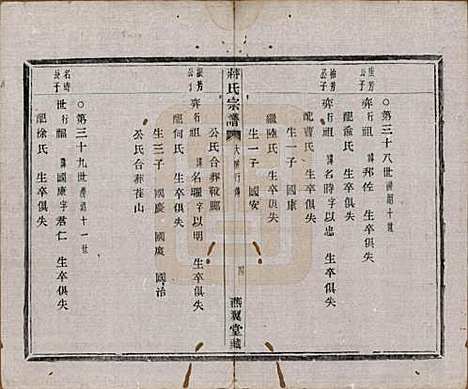 ○第三十八世
公子 弈行祖 諱邦佐 生卒俱失
配俞氏 生卒俱失
公子 弈行祖 諱名時字以忠 生卒俱失
配曹氏 生卒俱失
生一子 國康
繼陸氏 生卒俱失
生一子 國安
蔣氏宗譜
四
燕翼堂藏
公氏合葬
弈行祖 諱名耀字以明 生卒俱失
配何氏 生卒俱失
生三子 國慶 國 國治
公氏合葬崔山
○第三十九世
公子 世行福 諱國康字君仁 生卒俱失
配徐氏 生卒俱失